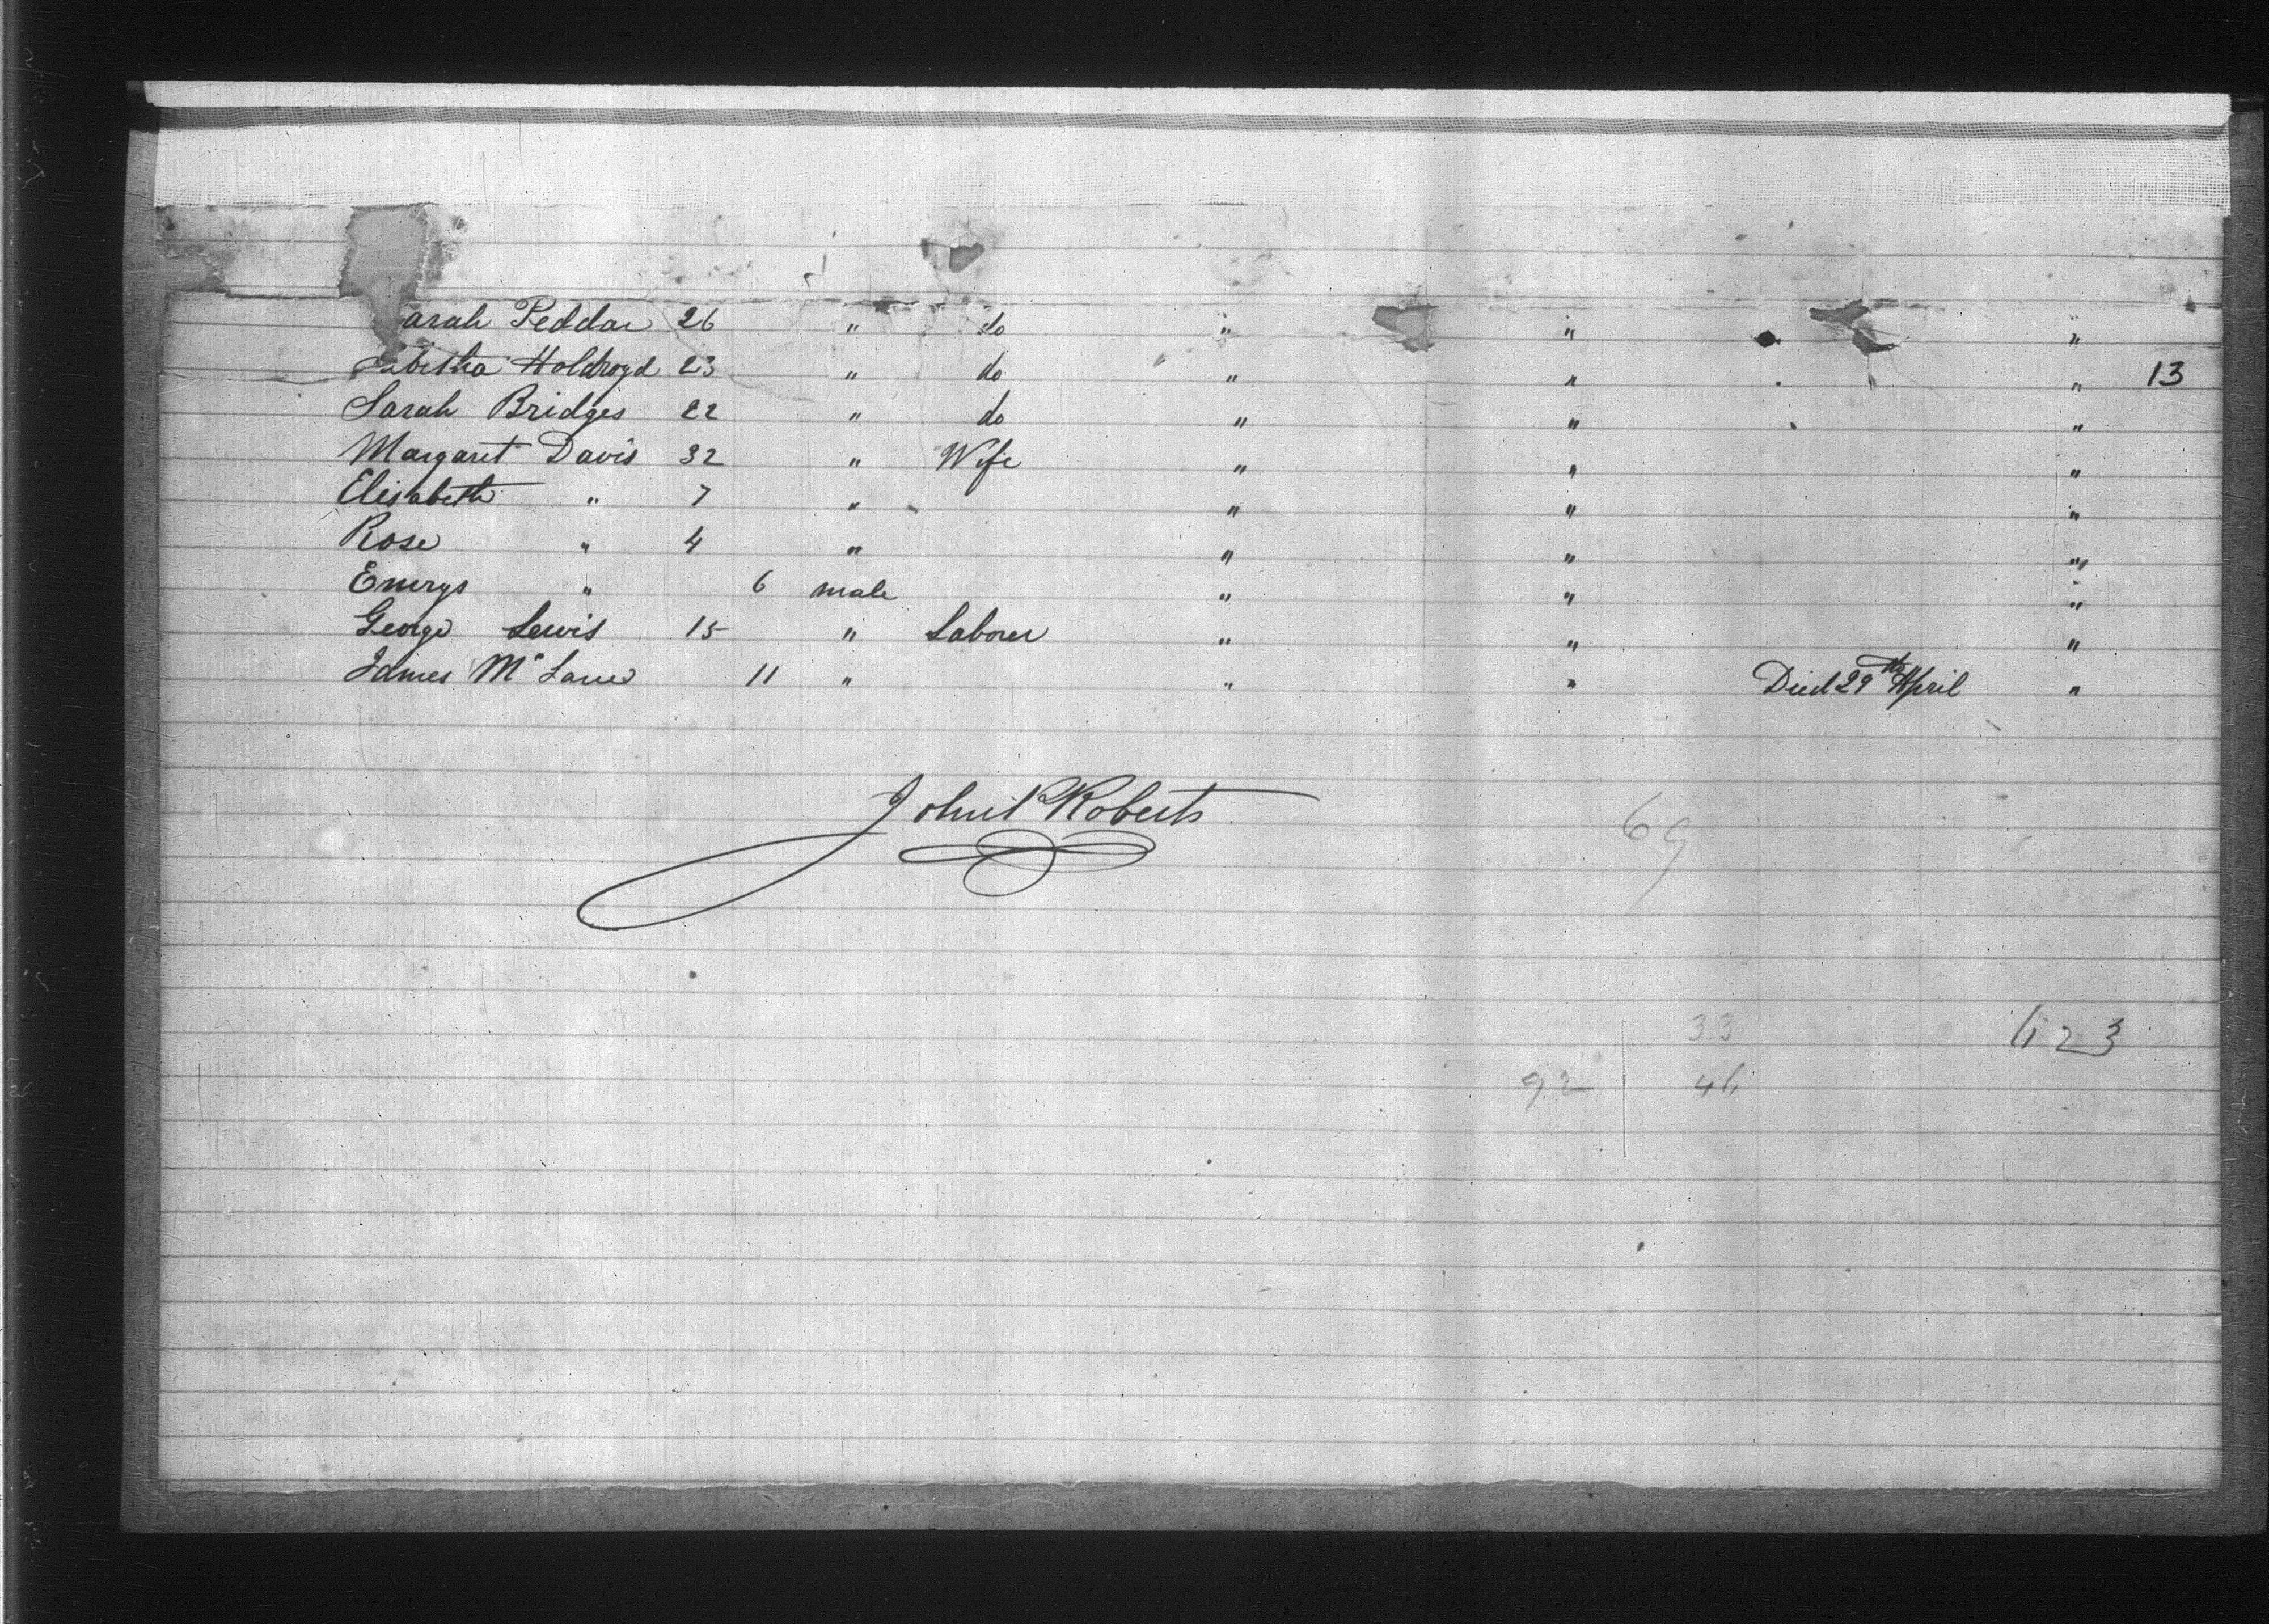 Sarah Peddar 26 " do " " "
Tabitha Holdroyd 23 " do " " " 13
Sarah Bridges 22 " do " " "
Margaret Davis 32 " Wife " " "
Elisabeth " 7 " " " "
Rose " 4 " " " "
Emrys " 6 male " " "
George Lewis 15 " Laborer " " "
James Mc 11 " " " Died 29th April "
Roberts
69
33
123
92 46